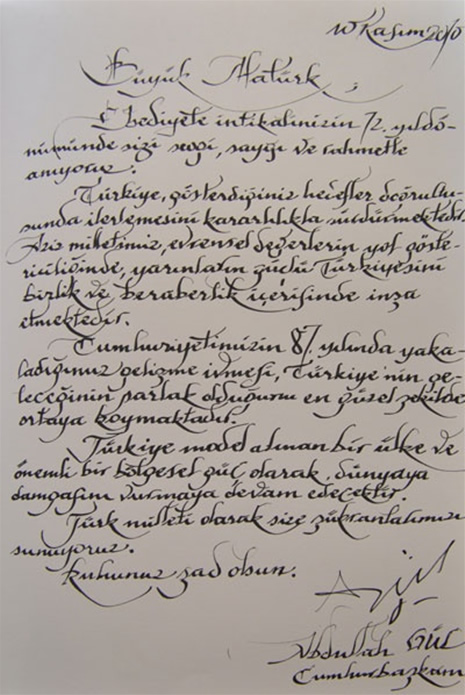 10 Kasım 2010
Büyük Atatürk,
Ebediyete intikalinizin 72. yıldö-
nümünde sizi sevgi, saygı ve rahmetle
anıyoruz.
Türkiye, gösterdiğiniz hedefler doğrultu-
sunda ilerlemesini kararlılıkla sürdürmektedir.
Aziz milletimiz, evrensel değerlerin yol göste-
riciliğinde, yarınların güçlü Türkiyesini
birlik ve beraberlik içerisinde inşa
etmektedir.
Cumhuriyetimizin 87. yılında yaka-
ladığımız gelişme ivmesi, Türkiye'nin ge-
leceğinin parlak olduğunu en güzel şekilde
ortaya koymaktadır.
Türkiye model alınan bir ülke ve
önemli bir bölgesel güç olarak, dünyaya
damgasını vurmaya devam edecektir.
Türk milleti olarak size şükranlarımızı
sunuyoruz.
Ruhunuz şad olsun.
A. Gül
Abdullah GÜL
Cumhurbaşkanı